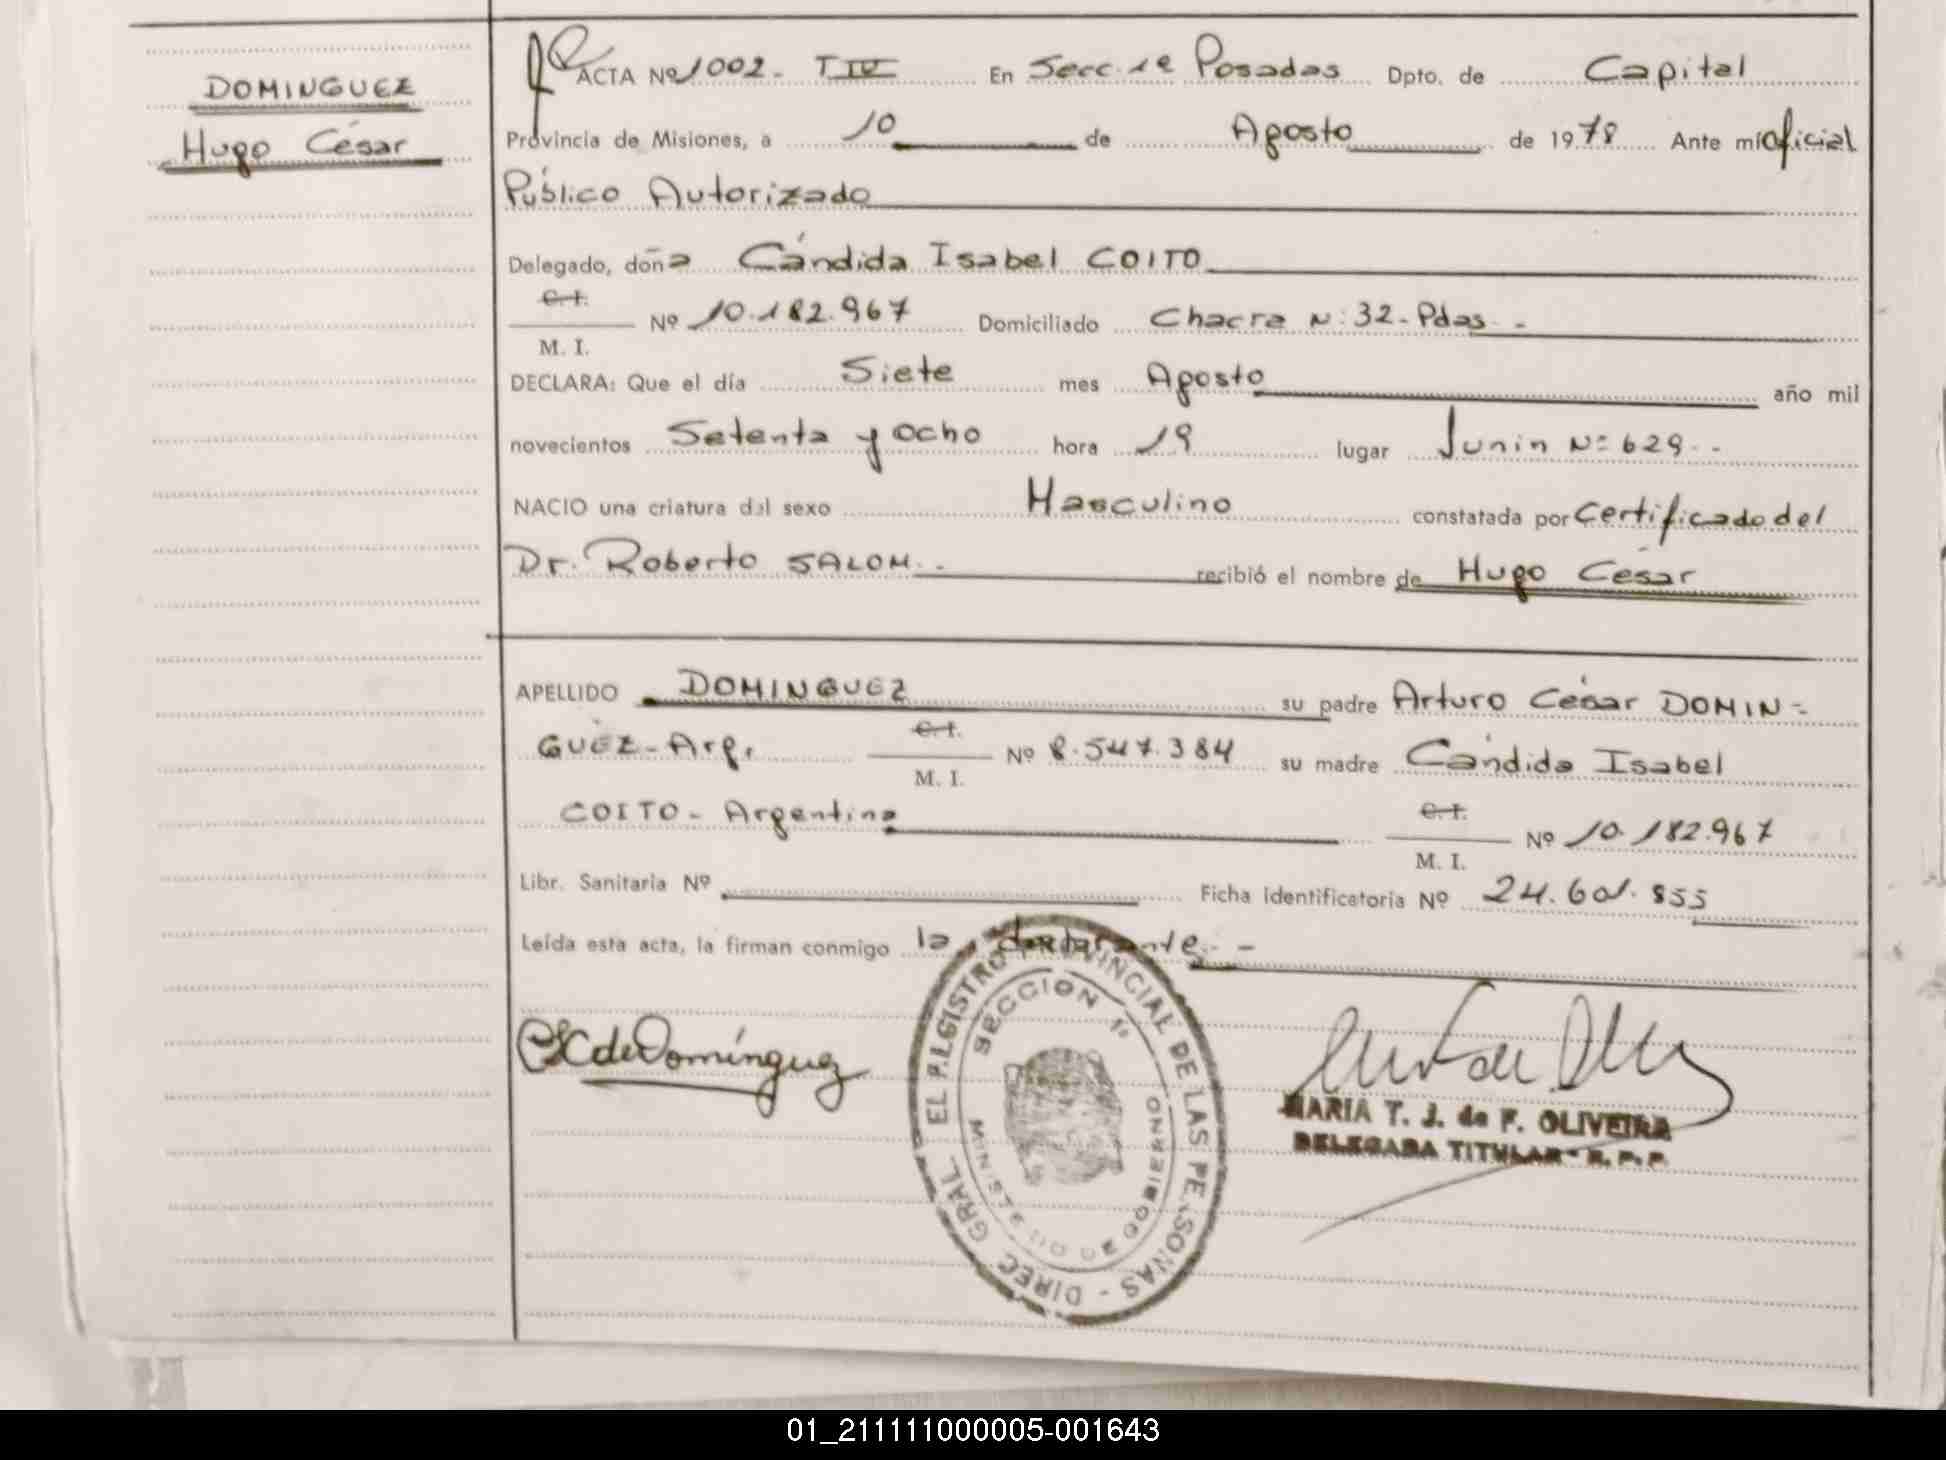 DOMINGUEZ
Hugo César
ACTA Nº 1002- T IV En Secc. 1ª Posadas Dpto. de Capital
Provincia de Misiones, a 10 de Agosto de 1978 Ante mí oficial
Público Autorizado
Delegado, doña Cándida Isabel COITO
C.I.
M. I. Nº 10.182.967 Domiciliado Chacra N: 32- Pdas. -
DECLARA: Que el día Siete mes Agosto año mil
novecientos Setenta y ocho hora 19 lugar Junin Nº 629.-
NACIO una criatura del sexo Masculino constatada por Certificado del
Dr. Roberto SALOM.- recibió el nombre de Hugo César
APELLIDO DOMINGUEZ su padre Arturo César DOMIN-
GUEZ- Arg. C.I. M. I. Nº 8.547.384 su madre Cándida Isabel
COITO- Argentina C.I. M. I. Nº 10.182.967
Libr. Sanitaria Nº Ficha identificatoria Nº 24.601.855
Leída esta acta, la firman conmigo la declarante.-
de Domínguez
DIREC. GRAL. DEL REGISTRO PROVINCIAL DE LAS PERSONAS -
SECCION 1ª
MINISTERIO DE GOBIERNO
MARIA T. J. de F. OLIVEIRA
DELEGADA TITULAR - R. P. P.
01_211111000005-001643